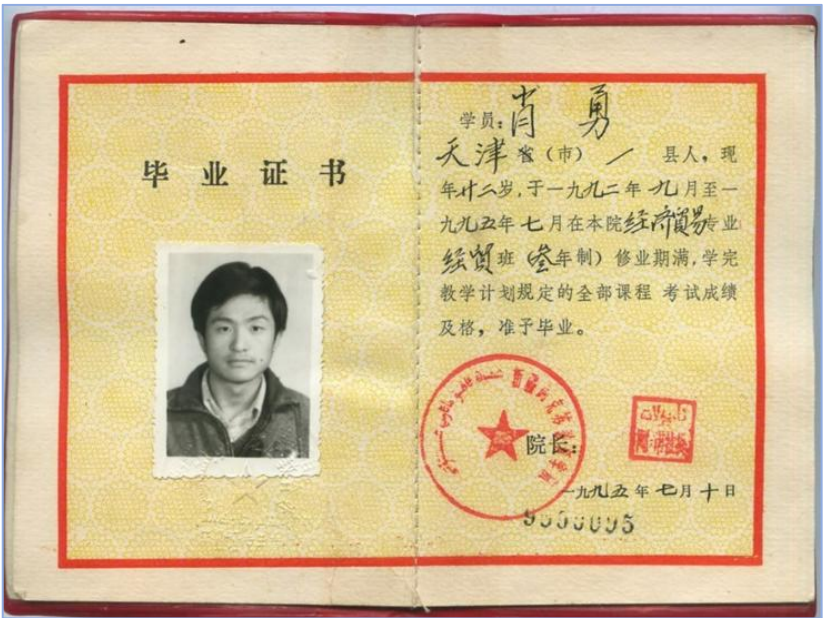 毕业证书
学员：肖勇
天津省（市）/县人，现
年廿二岁，于一九九二年九月至一
九九五年七月在本院经济貿易专业
经貿班（叁年制）修业期满，学完
教学计划规定的全部课程 考试成绩
及格，准予毕业。
院长：
一九九五年七月十日